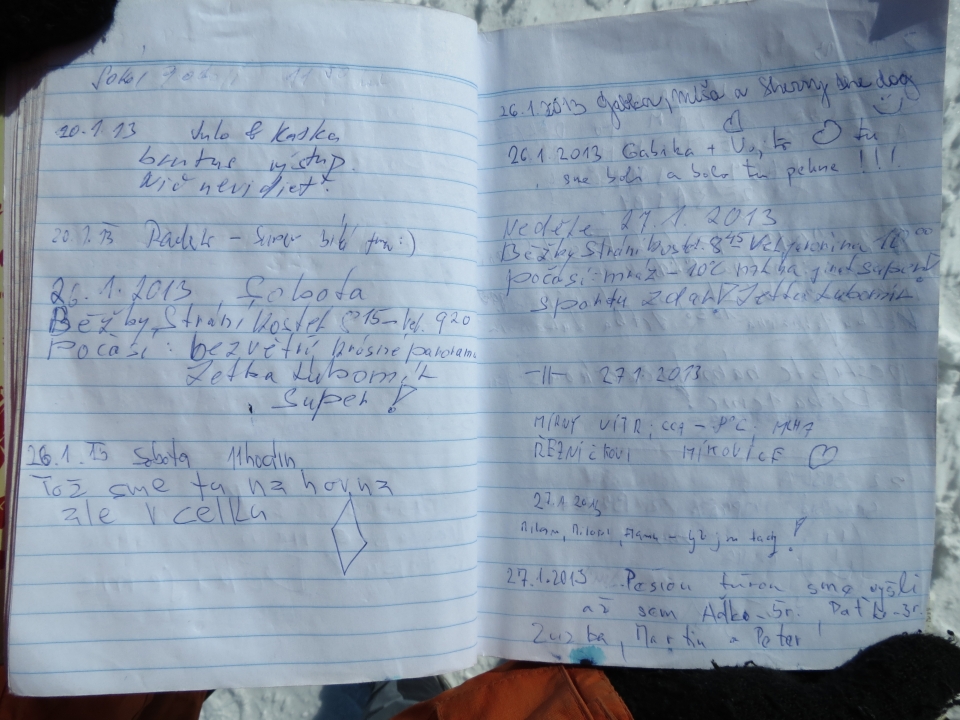 20.1.13 Julo & Katka
brutne výstup.
Nič nevidieť.
20.1.13 Radek –
26.1.2013 Sobota
Běžky, Strání Kostel 8 15 – 920
Počasí: bezvětří, krásné panorama
Zetka Lubomír
Super!
26.1.13 Sobota 11hodin
Tož sme tu na hovna
ale v celku
26.1.2013 Miša a Sherry the dog
26.1.2013 Gabika + Vojto tu
sme boli a bolo tu pekne!!!
Neděle 27.1 2013
Běžky Strání kostel 8 45 Vel. Javorina 10 00
počasí: mráz – 10°C mlha jinak super!
Sportu zdar! Zetka Lubomír
–||– 27.1.2013
MÍRNÝ VÍTR, CCA – 8°C, MLHA
ŘEZNÍČKOVI MÍKOVICE
27.1.2013
27.1.2013 Pešiou túrou sme vyšli
až sem Adko – 5r. Paťko – 3r.
Zuzka, Martin a Peter